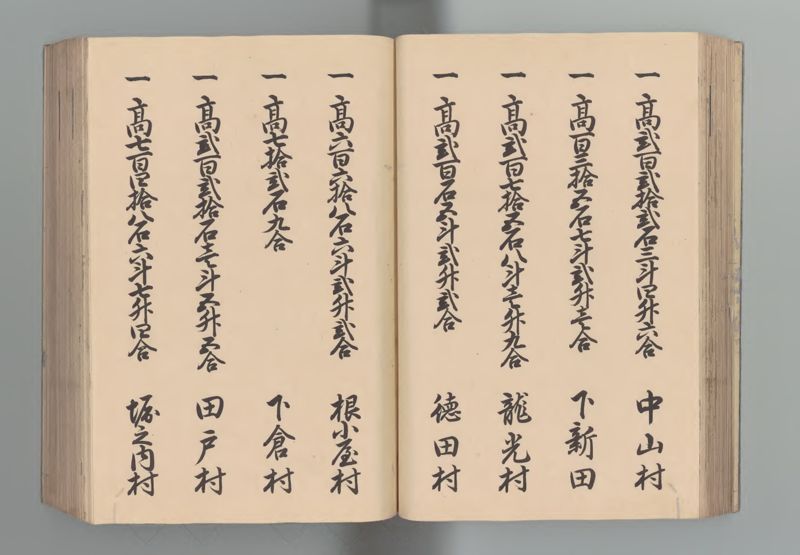 一 高弐百弐拾弐石三斗四升六合 中山村
一 高百三拾五石七斗弐升壱合 下新田
一 高弐百七拾五石八斗壱升九合 龍光村
一 高弐百石五斗弐升弐合 徳田村
一 高六百六拾八石六斗弐升弐合 根小屋村
一 高七拾弐石九合 下倉村
一 高弐百弐拾石壱斗五升五合 田戸村
一 高七百四拾八石六斗七升四合 堀之内村